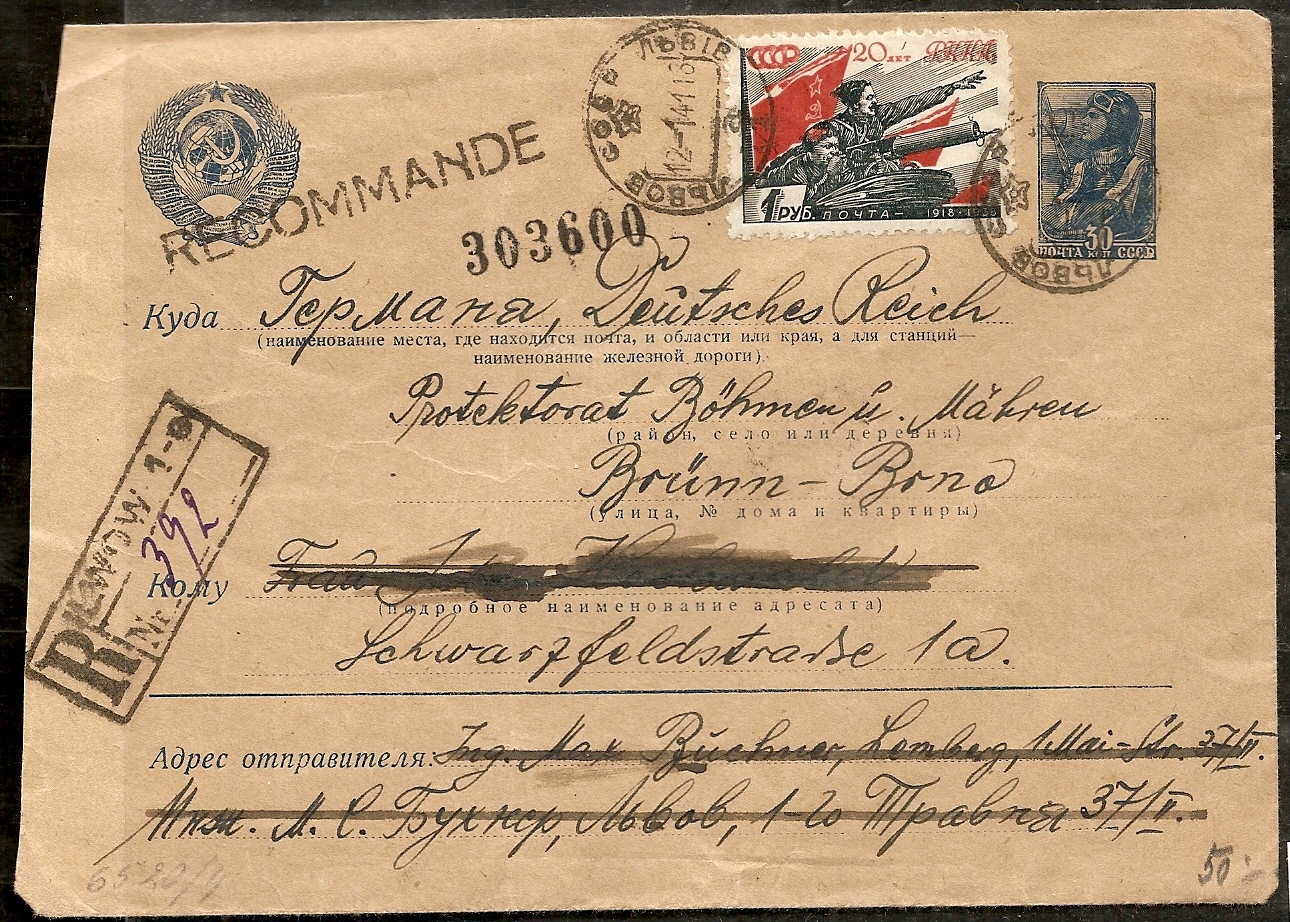 ЛЬВІВ
12-1 41 16
ЛЬВОВ
СССР 20 ЛЕТ РККА
1 РУБ. ПОЧТА — 1918-1938
30
ПОЧТА КОП. СССР
ЛЬВОВ
RECOMMANDE
303600
Куда Германя, Deutsches Reich
(наименование места, где находится почта, и области или края, а для станций—
наименование железной дороги).
Protektorat Böhmen u. Mähren
(район, село или деревня)
Brünn - Brno
(улица, № дома и квартиры)
R LWOW 1
Nr 392
Кому Frau
(подробное наименование адресата)
Schwarzfeldstraße 1a.
Адрес отправителя: Ing. Max Buchner, Lemberg, 1 Mai-Str. 37/II.
Инж. М. С. Бухнер, Львов, 1-го Травня 37/II.
6520/4
50